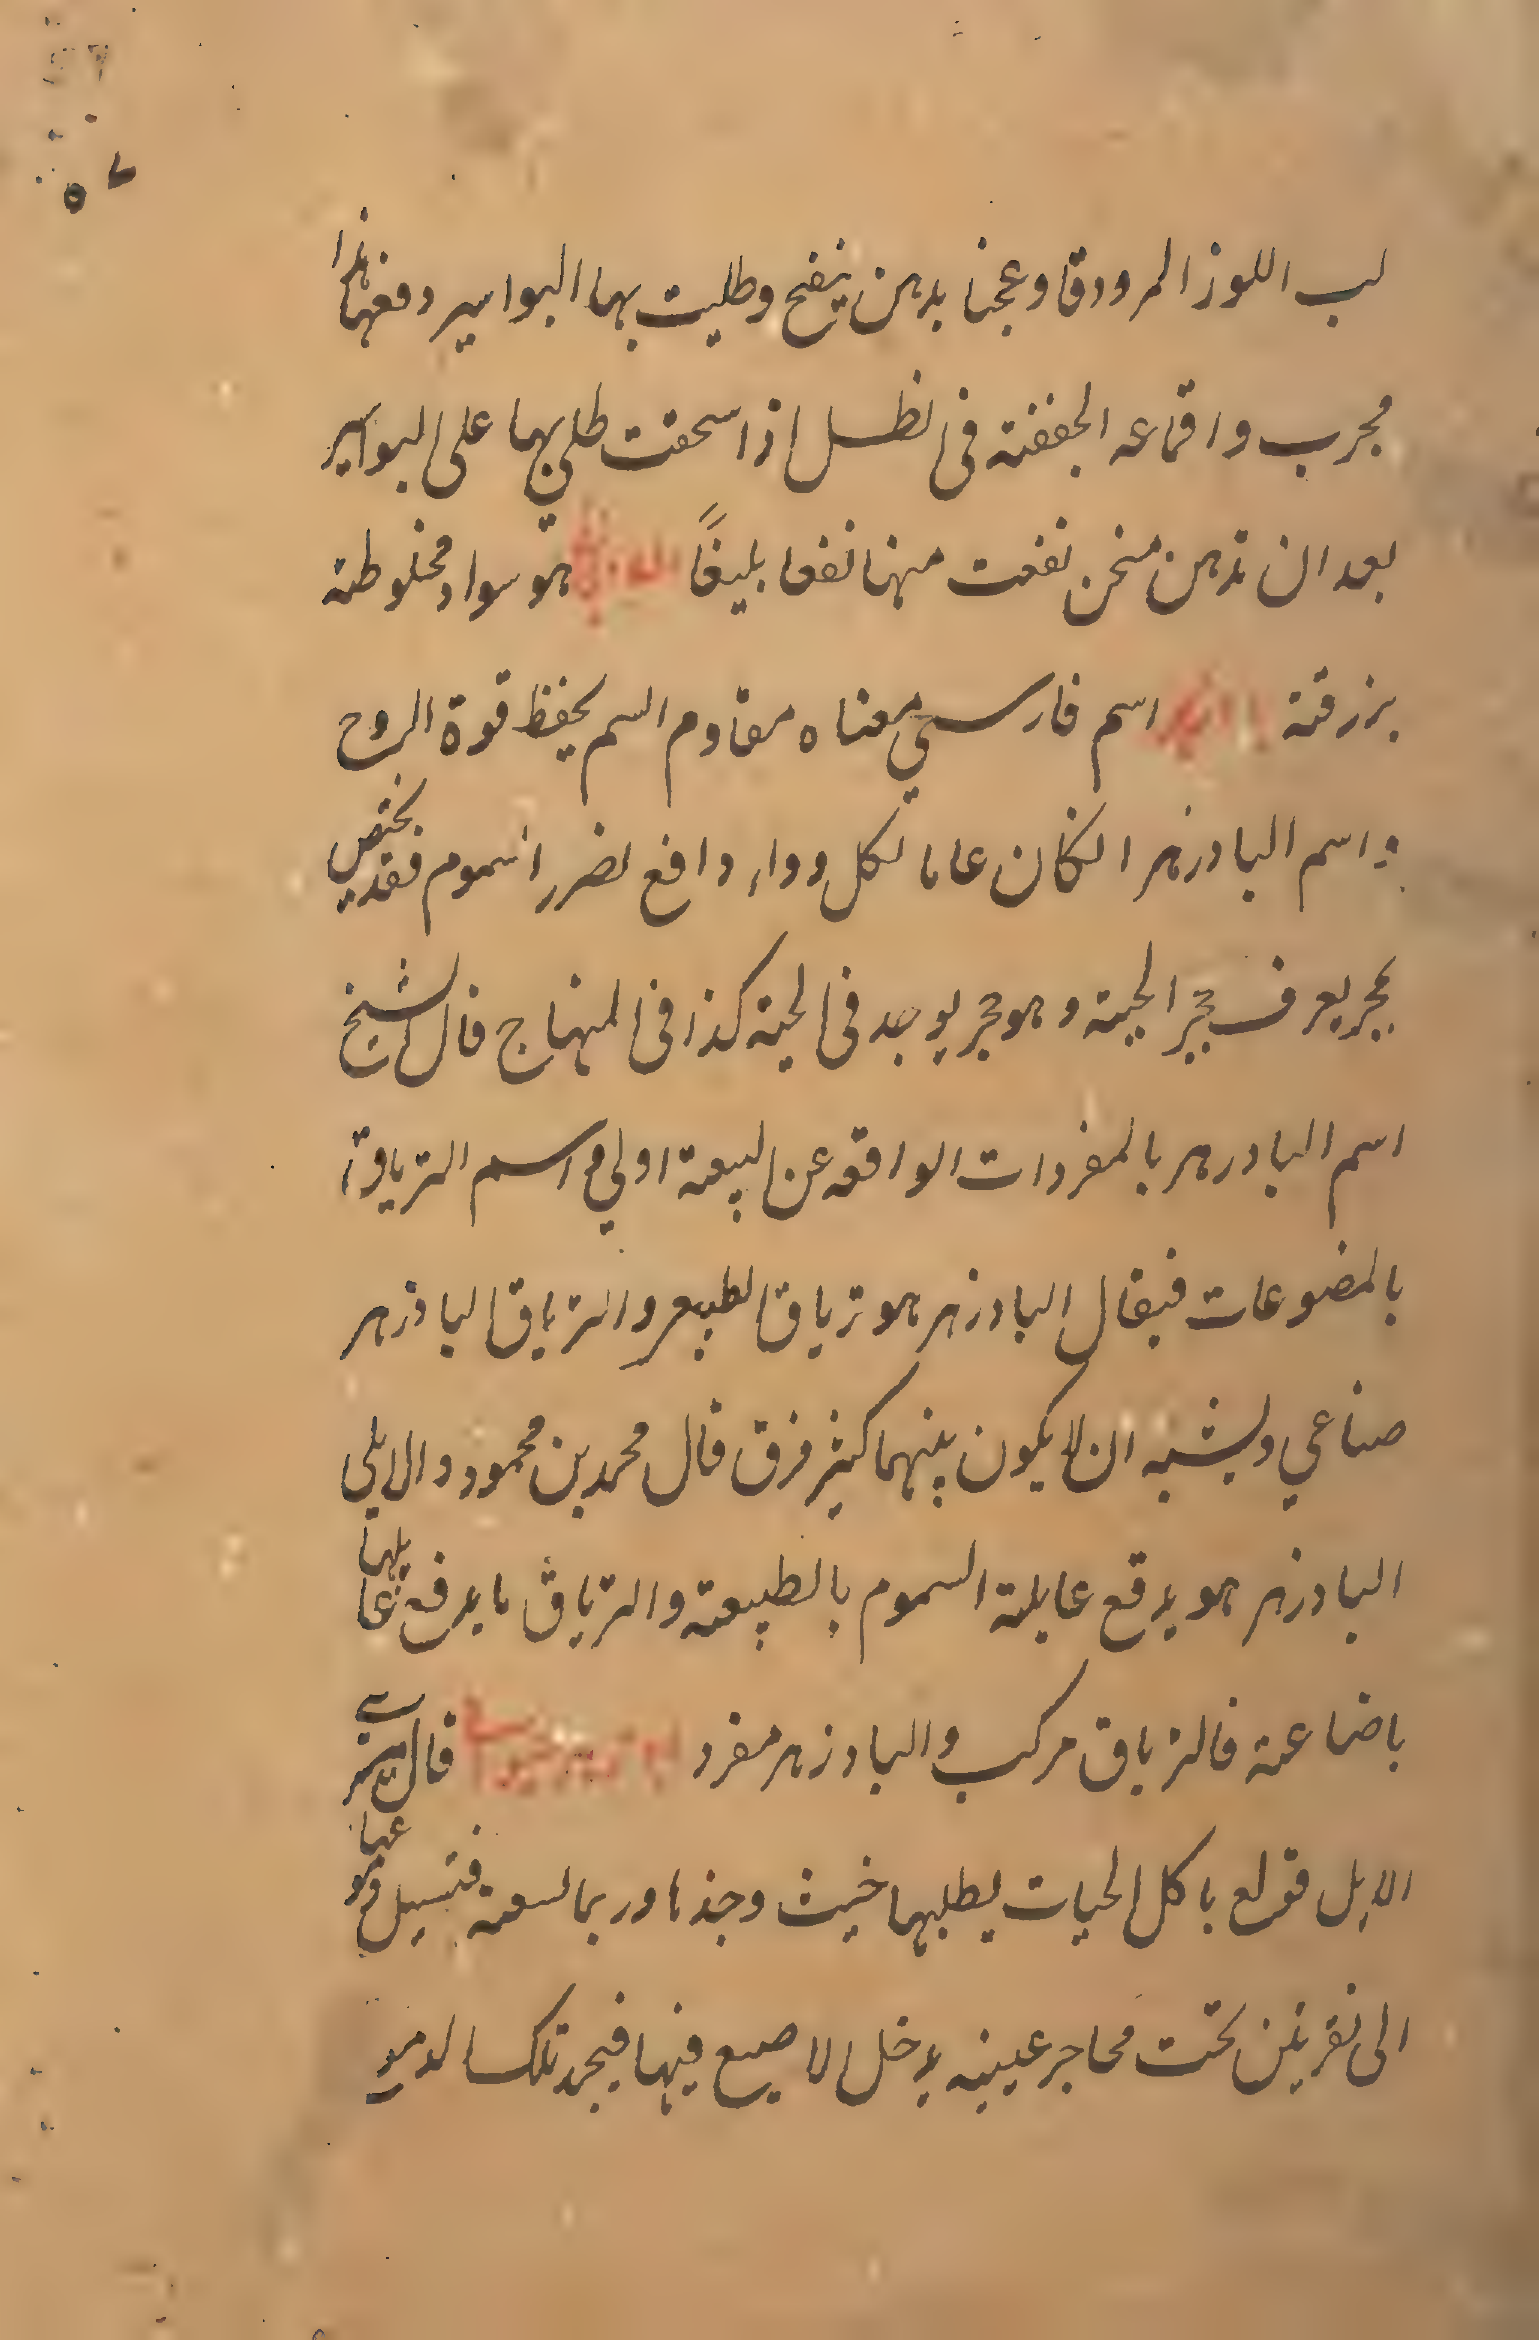 لب اللوز المر ودقا وعجنا بدهن بنفسج وطليت بها البواسير دفعها هذا
مجرب واقماعه المجففة في الظل اذا سحقت طلي بها على البواسير
بعد ان تدهن نفعت منها نفعا بليغًا هو سواد مخلوطة
بزرقة اسم فارسي معناه مقاوم السم يحفظ قوة الروح
واسم البادزهر انكان عاما لكل دواء دافع لضرر السموم فقد يختص
بحجر يعرف بحجر الحية وهو حجر يوجد في الحية كذا في المنهاج قال الشيخ
اسم البادزهر بالمفردات الواقعه عن الطبيعة اولى واسم الترياق
بالمصنوعات فيقال البادزهر هو ترياق طبيعي والترياق البادزهر
صناعي ويشبه ان لا يكون بينهما كثير فرق قال محمد بن محمود الايلي
البادزهر هو يدفع غايلة السموم بالطبيعة والترياق ما يدفع غايلها
باضاعة فالترياق مركب والبادزهر مفرد قال
الايل مولع باكل الحيات يطلبها حيث وجدها وربما لسعته فتسيل دموع عينيه
الى نقرتين تحت محاجر عينيه يدخل الاصبع فيها فيجمد تلك الدموع